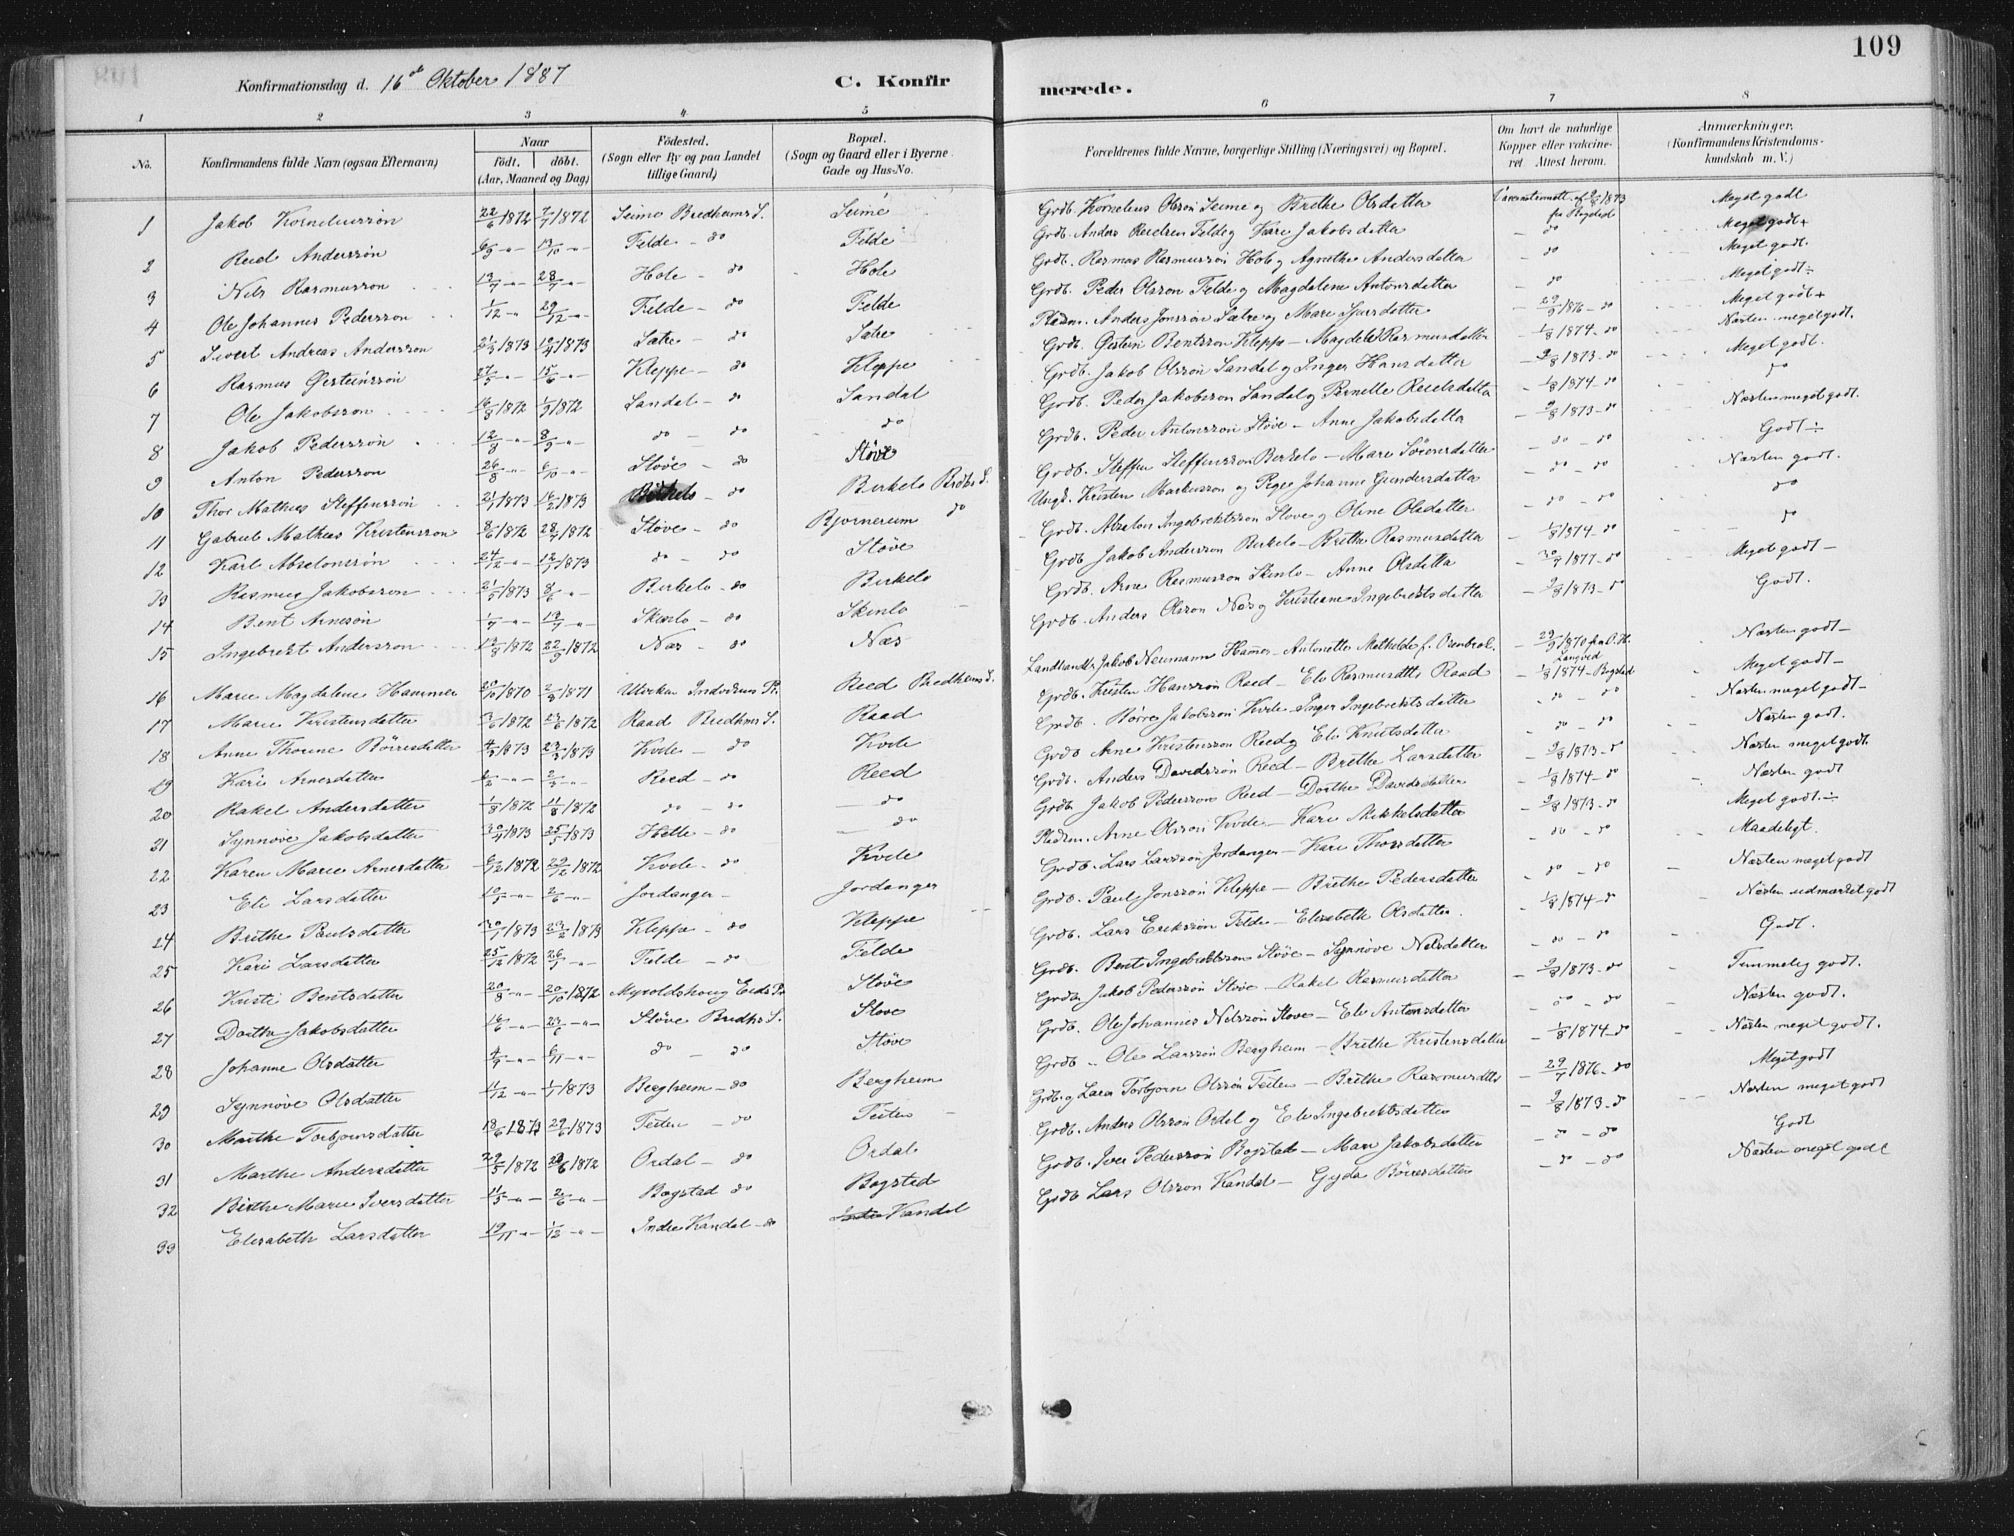 109
Konfirmationsdag d. 16de Oktober 1887
C. Konfirmerede.
1 2 3 4 5 6 7 8
No. Konfirmandens fulde Navn (ogsaa Efternavn) Naar födt. döbt. (Aar, Maaned og Dag) Födested. (Sogn eller By og paa Landet tillige Gaard) Bopæl. (Sogn og Gaard eller i Byerne Gade og Hus-No. Forældrenes fulde Navne, borgerlige Stilling (Næringsvei) og Bopæl. Om havt de naturlige Kopper eller vaccineret. Attest herom. Anmærkninger. (Konfirmandens Kristendomskundskab m. V.)
1 Jakob Korneliussøn 22/6 1872 7/7 1872 Seime Bredheims S. Seime Grdb. Kornelius Olssøn Seime og Brithe Olsdatter Meget godt
2 Reid Anderssøn Felde - do Felde Grdb. Anders Reidsen Felde og Kari Jakobsdatter - do Meget godt+
3 Nils Rasmussøn 28/7 -"- Hole - do Hole Grdb. Rasmus Rasmussøn Hole og Agnethe Andersdatter - do Meget godt.
4 Ole Johannes Pederssøn 1/12 -"- 29/12 -"- Felde - do Felde Grdb. Peder Olssøn Felde og Magdalene Antonsdatter - do Meget godt÷
5 Sivert Andreas Anderssøn 1873 1873 Sætre - do Sætre Pladsm. Anders Jonssøn Sætre og Mari Sjursdatter 1876 - do Meget godt+
6 Rasmus Gesteinssøn 27/5 -"- 15/6 -"- Kleppe - do Kleppe Grdb. Gestein Bentssøn Kleppe - Magdeli Rasmusdatter - 1/8 1874 - do Næsten meget godt.
7 Ole Jakobssøn 1872 1/9 1872 Sandal - do Sandal Grdb. Jakob Olssøn Sandal og Inger Hansdatter - 9/8 1873 - do Meget godt.
8 Jakob Pederssøn 12/8 -"- 8/9 -"- do - do do Grdb. Peder Jakobssøn Sandal og Pernille Reidsdatter - 1/8 1874 - do do
9 Anton Pederssøn 26/8 -"- 6/10 -"- Støve - do Støve Grdb. Peder Antonssøn Støve - Anne Jakobsdatter - 9/8 1873 - do Næsten meget godt.
10 Thor Mathias Steffenssøn 21/1 1873 16/2 1873 - do Birkelo Brdhs S. Grdb. Steffen Steffenssøn Birkelo - Mari Sørensdatter - do - do Godt ÷
11 Gabriel Mathias Kristenssøn 8/6 1872 28/7 1872 Støve - do Bjørnereim do Ungk. Kristen Markussøn og Pige Johanne Gundersdatter - do - do Næsten godt.
12 Karl Absalonssøn 24/12 -"- 12/1 1873 do - do Støve Grdb. Absalon Ingebrektssøn Støve og Oline Olsdatter - do - do do
13 Rasmus Jakobssøn 21/5 1873 8/6 -"- Birkelo - do Birkelo Grdb Jakob Anderssøn Birkelo - Brithe Rasmusdatter - 1/8 1874 - do do
14 Bent Arnesøn Skinlo - do Skinlo Grdb. Arne Rasmussøn Skinlo - Anne Olsdatter 1877 - do Meget godt -
15 Ingebrekt Anderssøn 1872 22/9 1872 Næs - do Næs Grdb. Anders Olssøn Næs og Kristiane Ingebrektsdatter - 9/8 1873 - do Godt.
16 Marie Magdalene Hammer 20/10 1870 1871 Reed Bredheims S. Landhandler Jakob Neumann Hammer - Antonette Mathilde f. 1870 Næsten godt -
17 Marie Kristensdatter 1872 23/6 1872 Raad Bredhms S. Raad Grdb. Kristen Hanssøn Raad - Eli Rasmusdtr Raad - 1/8 1874 - Bogstad Meget godt -
18 Anne Thorine Børresdatter 1873 23/3 1873 Kvile - do Kvile Grdb. Børre Jakobssøn Kvile Inger Ingebrektsdatter - do - do Næsten meget godt -
19 Kari Arnesdatter Reed - do Reed Grdb Arne Kristenssøn Reed og Eli Knutsdatter - do - do Næsten godt.
20 Rakel Andersdatter 1/8 1872 11/8 1872 do - do do Grdb. Anders Davidssøn Reed - Brithe Larsdatter - 9/8 1873 - do Næsten meget godt.
21 Synnøve Jakobsdatter 30/4 1873 25/5 1873 Hetle - do do Grdb Jakob Pederssøn Reed - Dorthe Davidsdatter - 1/8 1874 - do Næsten godt
22 Karen Marie Arnesdatter 6/12 1872 29/12 1872 Kvile - do Kvile Pladsm. Arne Olssøn Kvile - Kari Mikkelsdatter - 9/8 1873 - do Meget godt. ÷
23 Eli Larsdatter 10/5 -"- 2/6 -"- Jordanger - Jordanger Grdb. Lars Larssøn Jordanger - Kari Thorsdatter - do - do Maadeligt.
24 Brithe Paulsdatter 30/1 1873 23/2 1873 Kleppe - do Kleppe Grdb. Paul Jonssøn Kleppe - Brithe Pedersdatter - do - do Næsten meget godt
25 Kari Larsdatter 25/12 1872 26/1 -"- Felde - do Felde Grdb. Lars Erikssøn Felde - Elisabeth Olsdatter. - 1/8 1874 - do Næsten udmærket godt
26 Kristi Bentsdatter 20/8 -"- 20/10 1872 Myroldshoug Eids Pr Støve Grdb. Bent Ingebrektssøn Støve - Synnøve Nilsdatter - do - do Godt.
27 Dorthe Jakobsdatter 16/6 -"- 23/6 -"- Støve Bredhs S. Støve Grdb. Jakob Pederssøn Støve - Rakel Rasmusdatter - 9/8 1873 - do Temmelig godt.
28 Johanne Olsdatter do - do Støve Grdb. Ole Johannes Nilssøn Støve - Eli Antonsdatter - do - do Næsten godt.
29 Synnøve Olsdatter 11/12 -"- 1/1 1873 Bergheim - do Bergheim Grdb. Ole Larssøn Bergheim - Brithe Kristensdatter - 1/8 1874 - do Næsten meget godt.
30 Marthe Torbjørnsdatter 18/6 1873 29/6 1873 Teiten - do Teiten Grdb. og Lærer Torbjørn Olssøn Teiten - Brithe Rasmusdtr - 29/7 1876 - do Meget godt
31 Marthe Andersdatter 29/5 1872 1872 Ordal - do Ordal Grdb. Anders Olssøn Ordal og Eli Ingebrektsdatter - 9/8 1873 - do Næsten meget godt
32 Birthe Marie Iversdatter 11/5 -"- 2/6 -"- Bogstad do Bogstad Grdb. Iver Pederssøn Bogstad - Mari Jakobsdatter - do - do Godt
33 Elisabeth Larsdatter 19/11 -"- 1/12 -"- Indre Kandal - do Kandal Grdb Lars Olssøn Kandal - Gyda Børresdatter - do - do Næsten meget godt